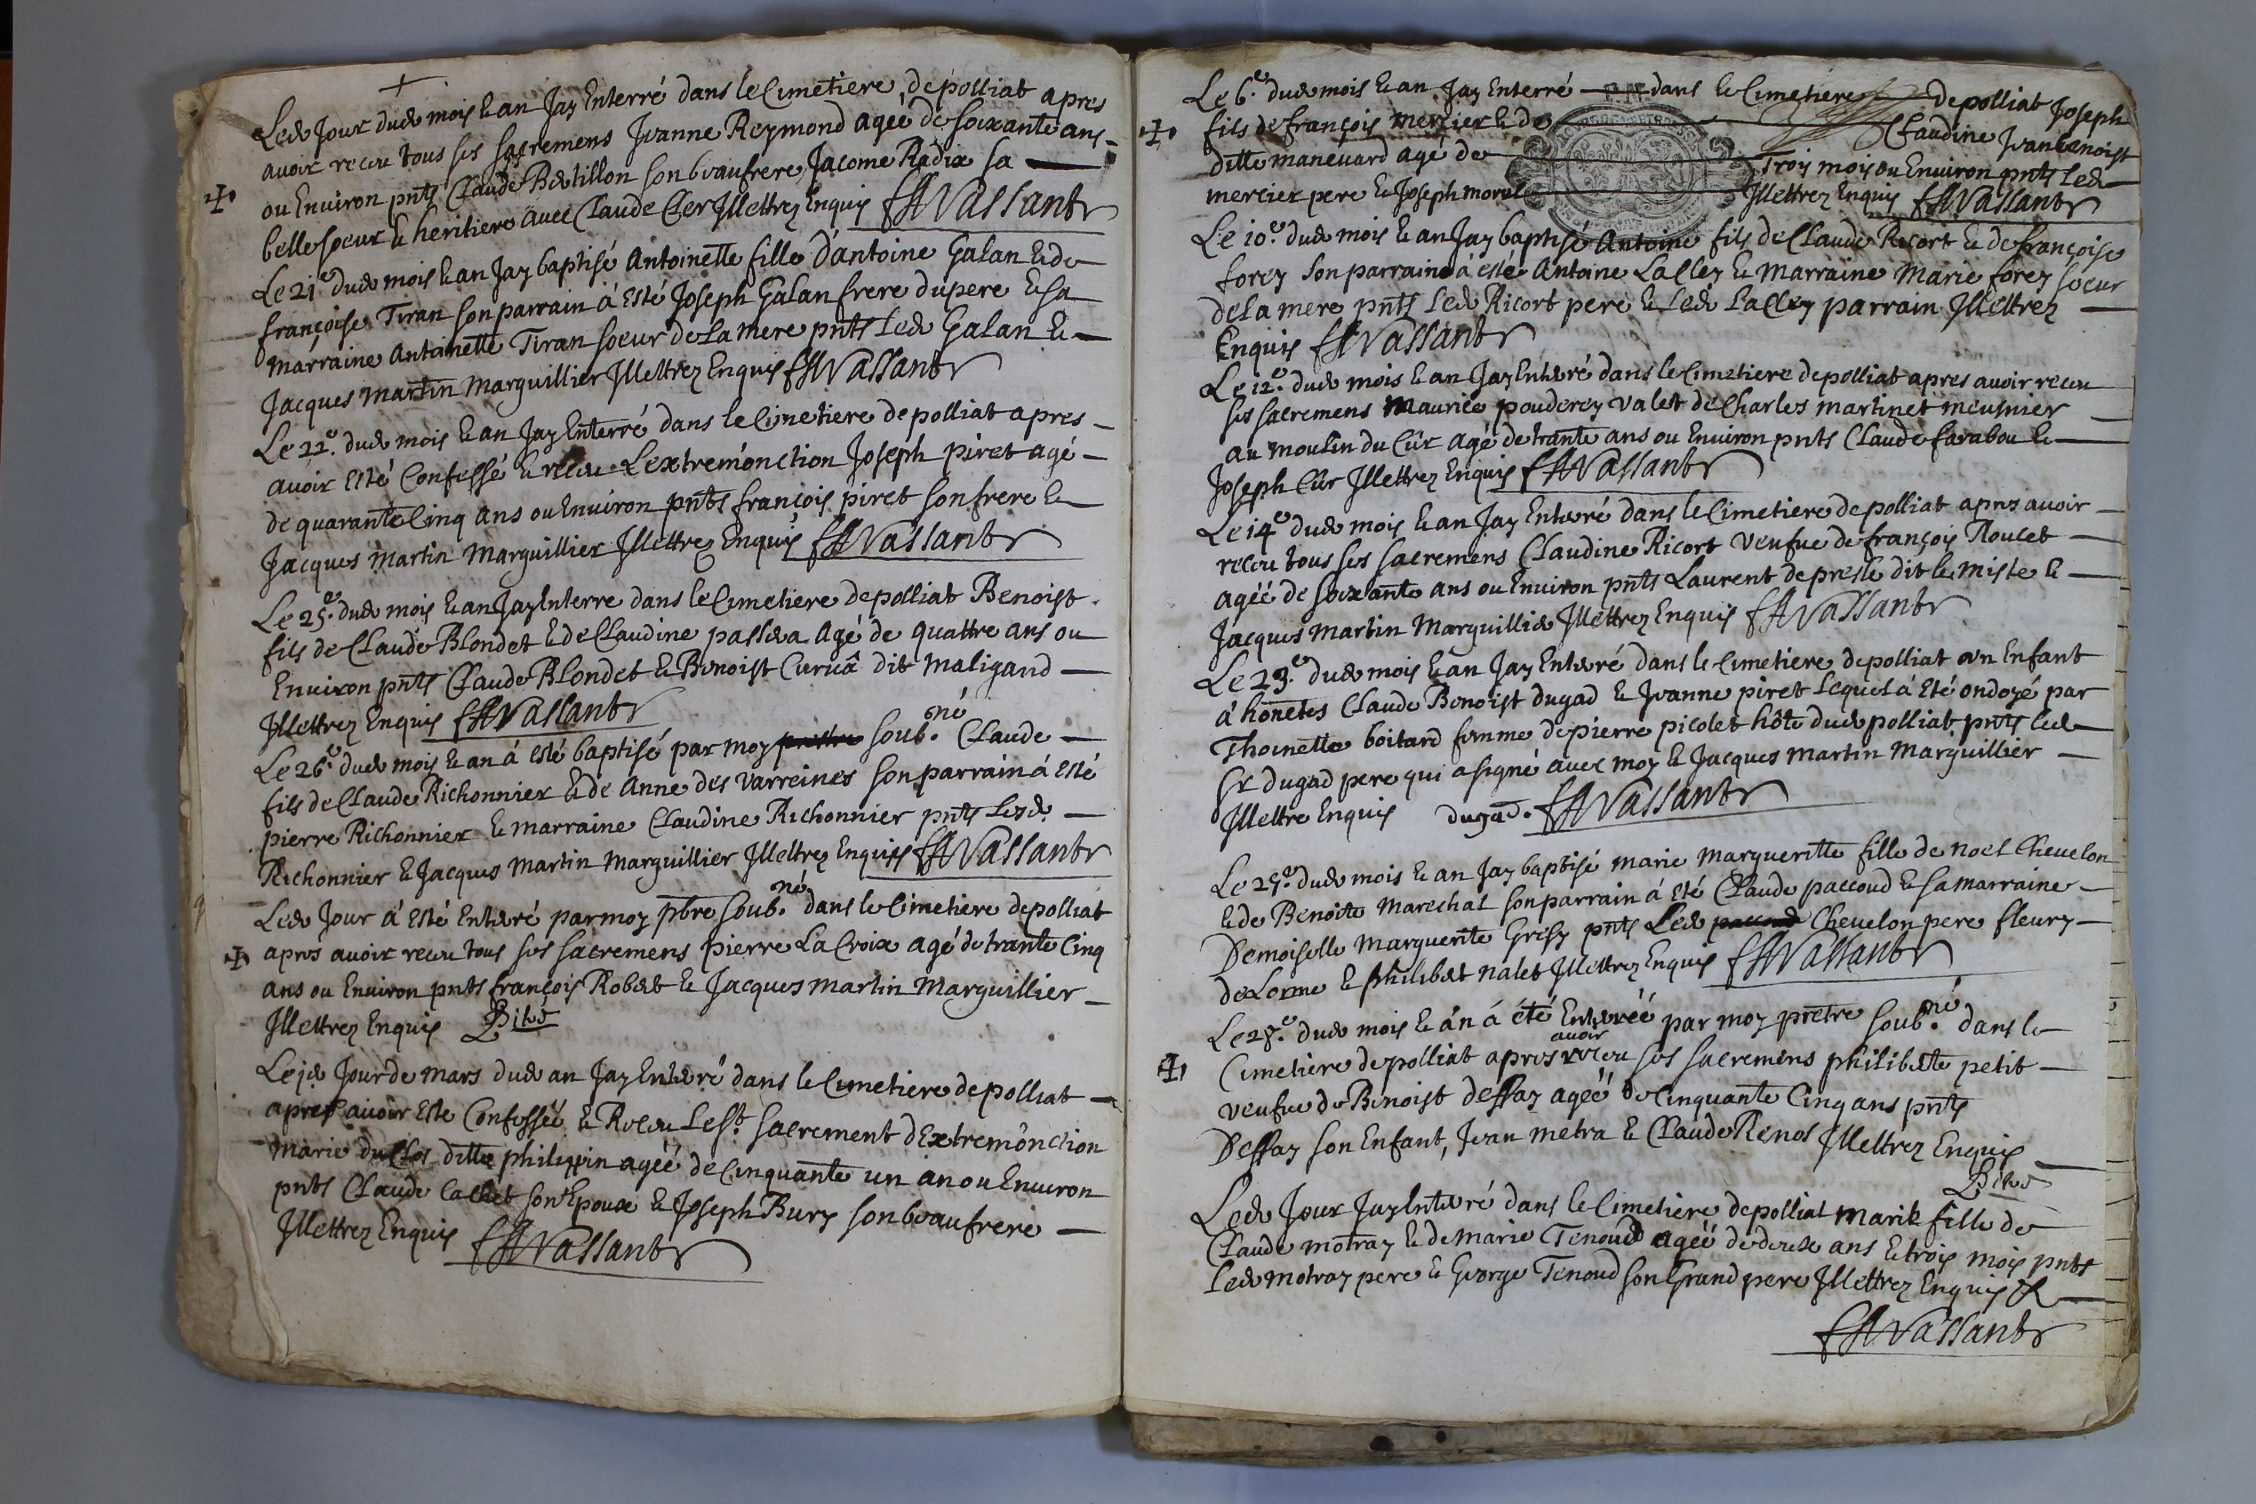 Led Jour dud mois & an Jay Enterré dans le Cimetiere depolliat apres
avoir receu tous ses sacremens Jeanne Reymond ageé de soixante ans
ou Environ pnts Claude Bertillon son beaufrere Jacome Radix sa
belle soeur & heritiere avec Claude Cler Jllettrez Enquis Vassant
Le 21e dud mois & an Jay baptisé Antoinette fille d'antoine Galan & de
françoise Tiran son parrain à Esté Joseph Galan frere dupere & sa
marraine Antoinette Tiran soeur de La mere pnts Led Galan &
Jacques martin marguillier Jllettrez Enquis Vassant
Le 22e dud mois & an Jay Enterré dans le Cimetiere de polliat apres
avoir Esté Confessé & receu Lextremónction Joseph piret agé
de quarante Cinq ans ou Environ pnts françois piret son frere &
Jacques martin marguillier Jllettrez Enquis Vassant
Le 25e dud mois & an Jay Enterre dans le Cimetiere de polliat Benoist
fils de Claude Blondet & de Claudine agé de quattre ans ou
Environ pnts Claude Blondet & Benoist dit maligand
Jllettrez Enquis Vassant
Le 26e dud mois & an á esté baptisé par moy soub.né Claude
fils de Claude Richonnier & de Anne des Varreines son parrain á Esté
pierre Richonnier & marraine Claudine Richonnier pnts Lesd.
Richonnier & Jacques martin marguillier Jllettrez Enquis Vassant
Led Jour á Esté Enterré par moy pbre soub.né dans le Cimetiere depolliat
apres avoir receu tous ses sacremens pierre La Croix agé de trante Cinq
ans ou Environ pnts françois Robert & Jacques martin Marguillier
Jllettrez Enquis
Le jer Jour de mars dud an Jay Enterré dans le Cimetiere de polliat
apres avoir Este Confesseé & Receu Le St. sacrement dExtremônction
marie duClos ditte philippin ageé de Cinquante un an ou Environ
pnts Claude son Epoux & Joseph Bury son beaufrere
Jllettrez Enquis Vassant
Le 6e. dud mois & an Jay Enterré dans le Cimetiere depolliat Joseph
fils de françois mercier & de Claudine Jvanbenoist
ditte maneuard agé de Trois mois ou Environ pnts Led
mercier pere & Joseph morel Jllettrez Enquis Vassant
Le 10e. dud mois & an Jay baptisé Antoine fils de Claude Ricort & de françoise
forey son parrain á esté Antoine Lalley & Marraine Marie forey soeur
de La mere pnts Led Ricort pere & Led Lalley parrain Jllettrez
Enquis Vassant
Le 12e. dud mois & an Jay Enterré dans le Cimetiere depolliat apres avoir receu
ses sacremens Maurice pouderey valet de Charles martinet meusnier
au moulin du Cûr agé de trante ans ou Environ pnts Claude farabou &
Joseph Cûr Jllettrez Enquis Vassant
Le 14e dud mois & an Jay Enterré dans le Cimetiere de polliat apres avoir
receu tous ses sacremens Claudine Ricort veufue de françois Roulet
ageé de soixante ans ou Environ pnts Laurent depresle dit le miste &
Jacques martin Marguillier Jllettrez Enquis Vassant
Le 23e. dud mois & an Jay Enterré dans le Cimetiere depolliat vn Enfant
á honetes Claude Benoist dugad & Jeanne piret Lequel á Eté ondoyé par
Thoinette boitard femme de pierre picolet hôte dud polliat pnts led
Sr dugad pere qui a signé avec moy & Jacques martin Marguillier
Jllettre Enquis dugad. Vassant
Le 25e. dud mois & an Jay baptisé marie margueritte fille de noel Chevelon
& de Benoite marechal son parrain á Eté Claude paccoud & sa marraine
Demoiselle marguerite Grisy pnts Led Chevelon pere fleury
deLorme & philibert nalet Jllettrez Enquis Vassant
Le 28e. dud mois & án á été Enterreé par moy pretre soub.né dans le
Cimetiere depolliat apres avoir receu ses sacremens philiberte petit
veufue de Benoist deffay ageé de Cinquante Cinq ans pnts
Deffay son Enfant, Jean metra & Claude Renos Jllettrez Enquis
Led Jour Jay Enterré dans le Cimetiere depolliat marie fille de
Claude motray & de marie Tenoud ageé de deux ans & trois mois pnts
Led motray pere & George Tenoud son Grand pere Jllettrez Enquis
Vassant